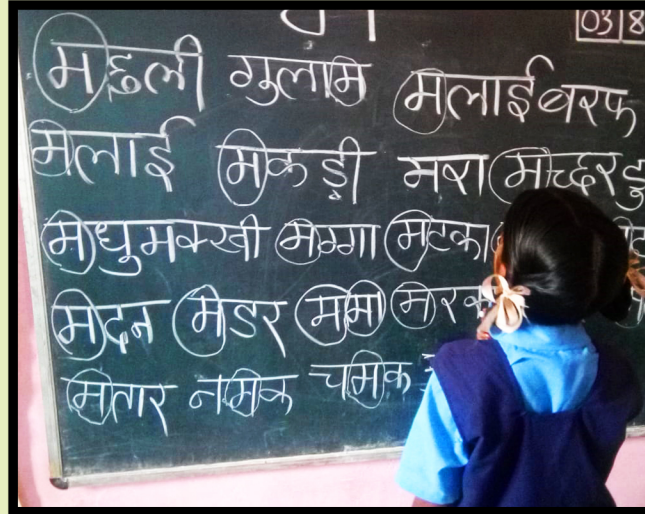 03 8
मछली गुलाम मलाईबरफ
मलाई मकड़ी मरा मच्छर
मधुमक्खी मग्गा मटका
मदन मेडर मामा
मतार नमक चमिक